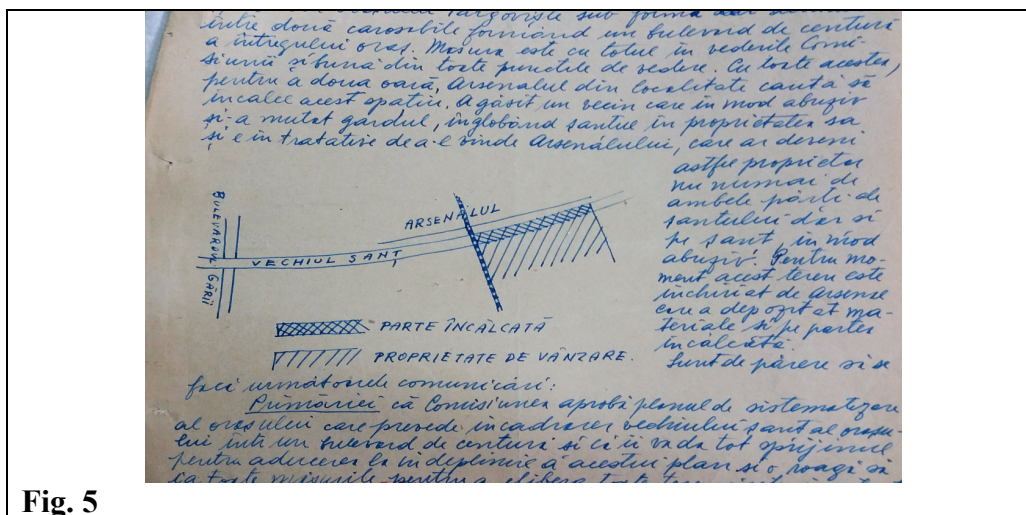 Târgoviște sub forma
între două carosabile formând un bulevard de centură
a întregului oraș. Măsura este cu totul în vederile Comi-
siunii și bună din toate punctele de vedere. Cu toate acestea,
pentru a doua oară, Arsenalul din localitate caută să
încalce acest spațiu. A găsit un vecin care în mod abuziv
și-a mutat gardul, înglobând șanțul în proprietatea sa
și e în tratative de a-l vinde Arsenalului, care ar deveni
astfel proprietar
nu numai de
ambele părți de
șantului dar și
pe șanț, în mod
abuziv. Pentru mo-
ment acest teren este
închiriat de Arsenal
care a depozitat ma-
teriale și pe partea
încălcată.
Sunt de părere să se
BULEVARDUL GĂRII
VECHIUL ȘANȚ
ARSENALUL
PARTE ÎNCĂLCATĂ
PROPRIETATE DE VÂNZARE.
facă următoarele comunicări:
Primăriei că Comisiunea aprobă planul de sistematizare
al orașului care prevede încadrarea vechiului șanț al orașu-
lui într-un bulevard de centură și că îi va da tot sprijinul
pentru aducerea la îndeplinire a acestui plan și o roagă să
ia toate măsurile pentru a elibera toate
Fig. 5